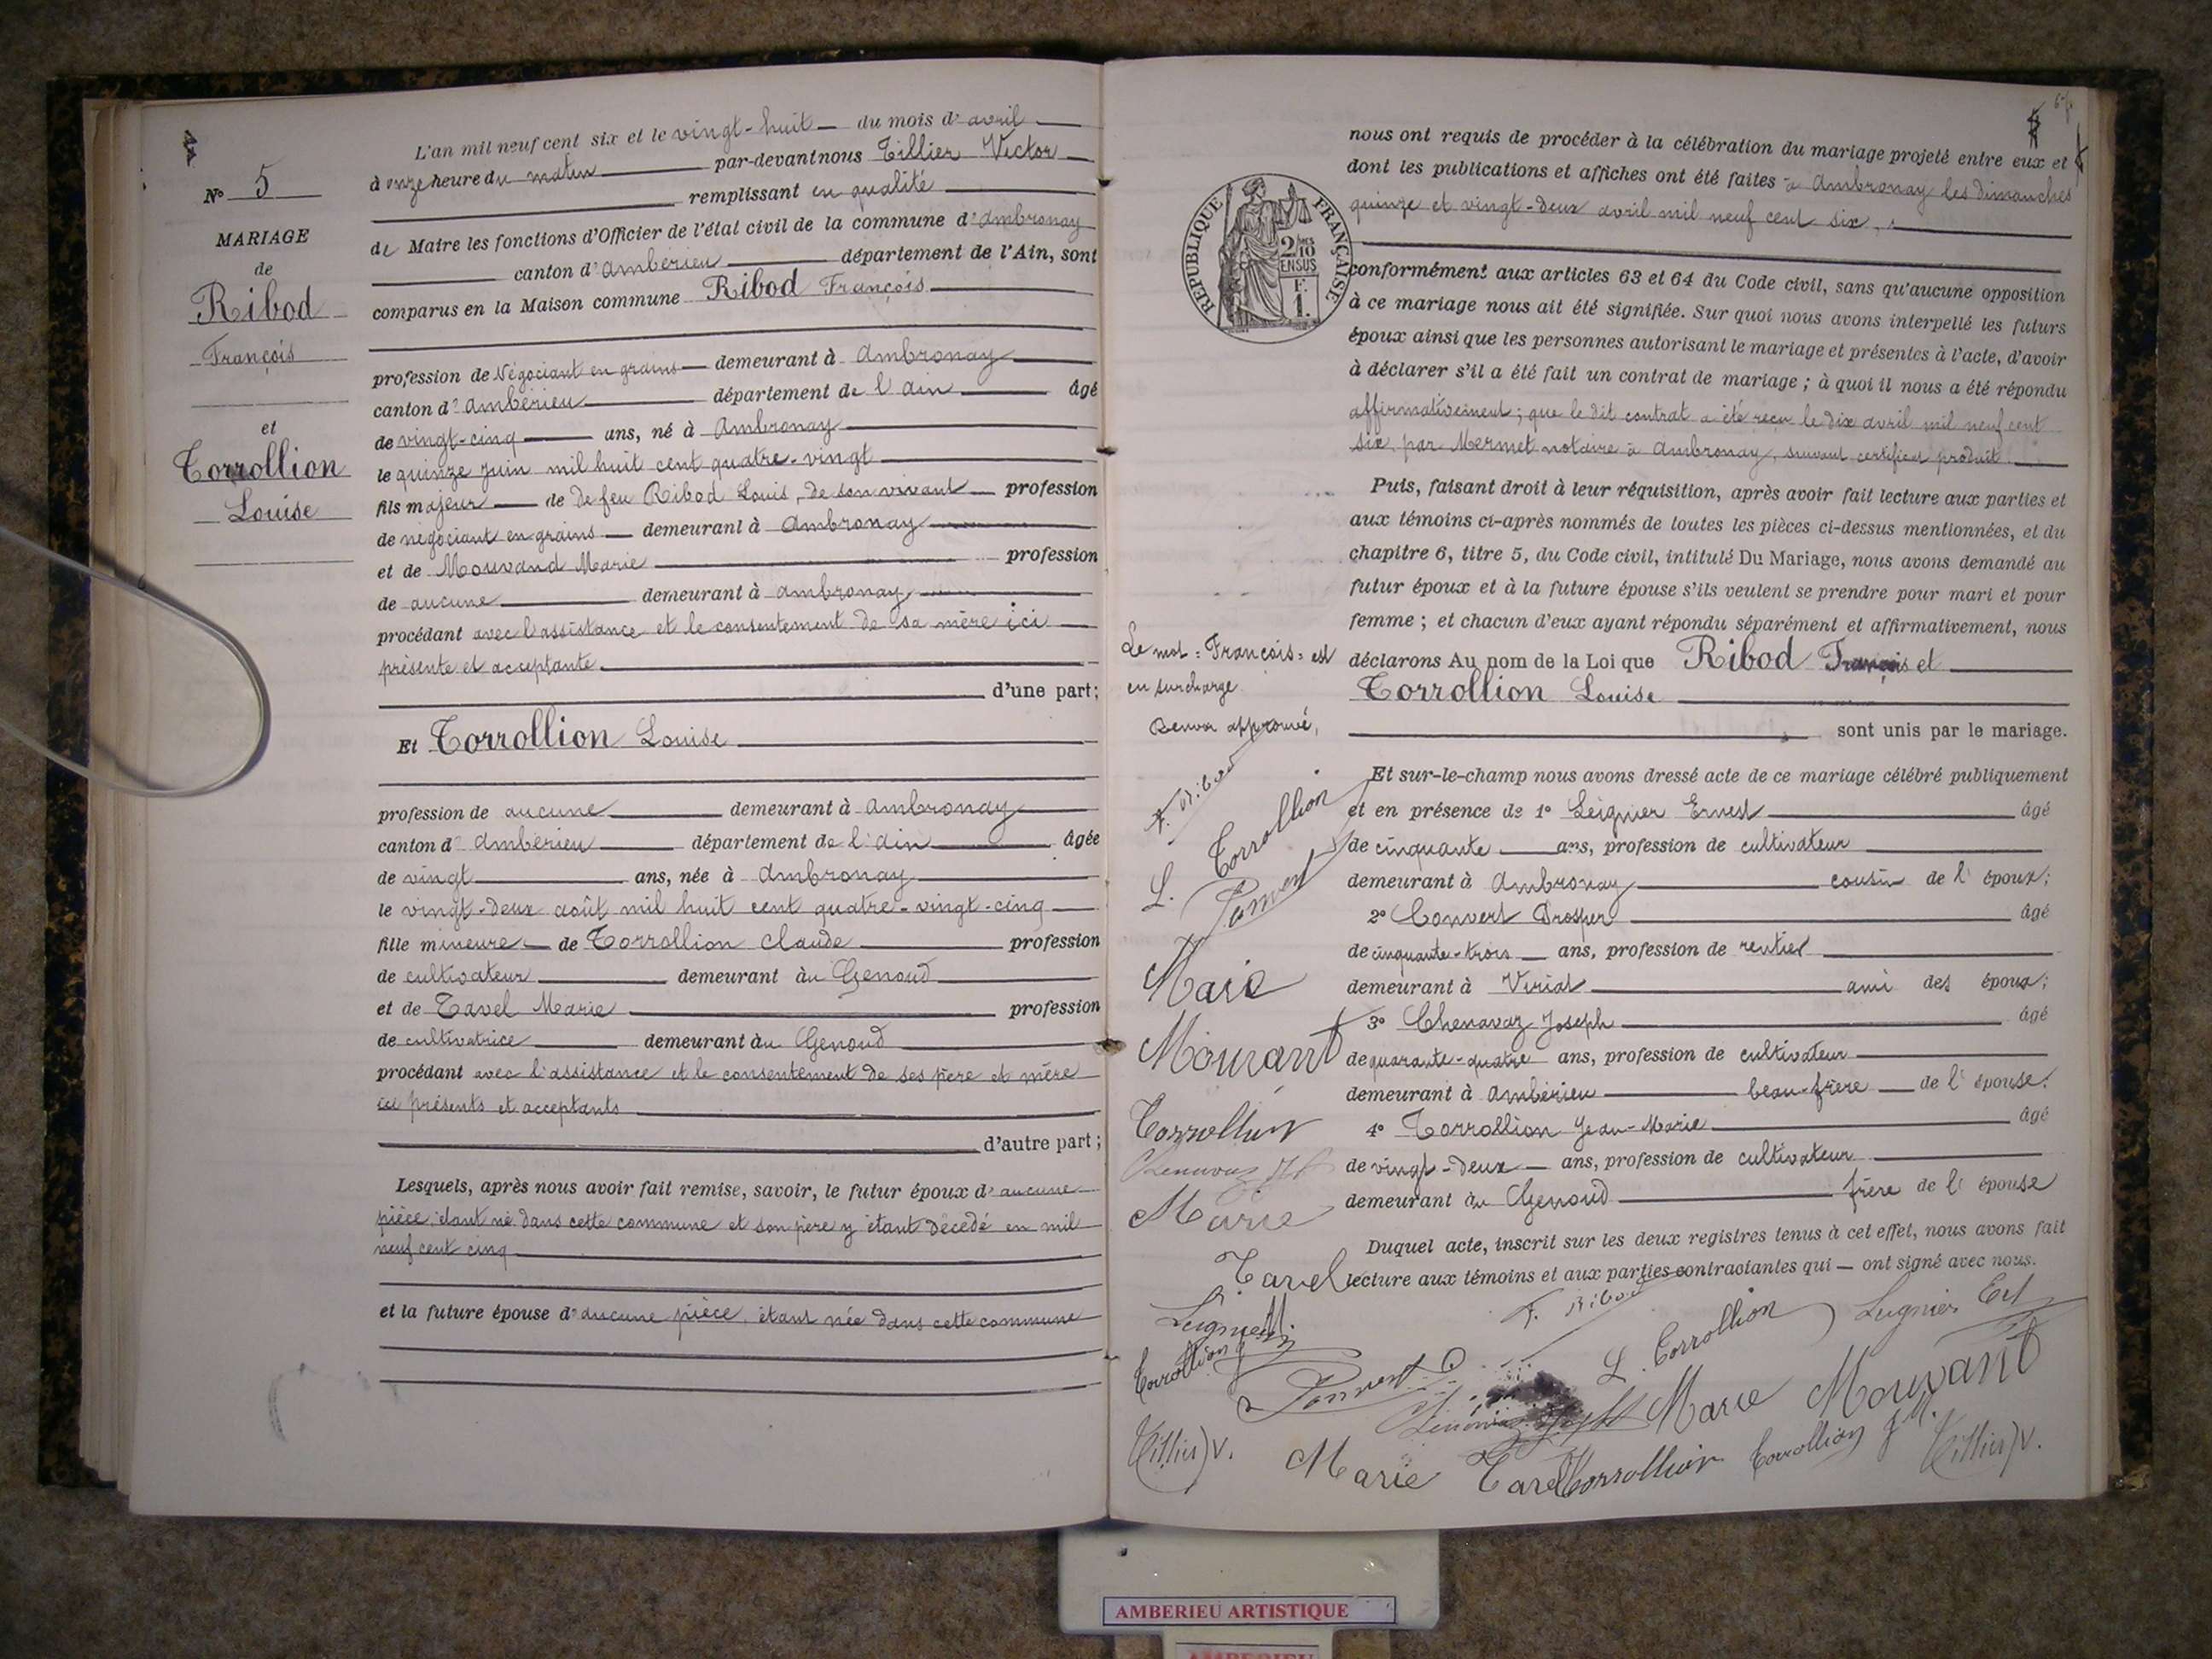 N° 5
MARIAGE
de
Ribod
François
et
Torrollion
Louise
L'an mil neuf cent six et le vingt-huit du mois d' avril
à onze heure du matin par-devant nous Tillier Victor
remplissant en qualité
de Maire les fonctions d'Officier de l'état civil de la commune d' Ambronay
canton d' Ambérieu département de l'Ain, sont
comparus en la Maison commune Ribod François
profession de Négociant en grains demeurant à Ambronay
canton d' Ambérieu département de l'ain âgé
de vingt-cinq ans, né à Ambronay
le quinze Juin mil huit cent quatre-vingt
fils majeur de De feu Ribod Louis, de son vivant profession
de négociant en grains demeurant à Ambronay
et de Mouvand Marie profession
de aucune demeurant à Ambronay
procédant avec l'assistance et le consentement de sa mère ici
présente et acceptante
d'une part;
Et Torrollion Louise
profession de aucune demeurant à Ambronay
canton d' Ambérieu département de l'ain âgée
de vingt ans, née à Ambronay
le vingt-deux août mil huit cent quatre-vingt-cinq
fille mineure de Torrollion Claude profession
de cultivateur demeurant àu Genoud
et de Tavel Marie profession
de cultivatrice demeurant àu Genoud
procédant avec l'assistance et le consentement de ses père et mère
ici présents et acceptants
d'autre part;
Lesquels, après nous avoir fait remise, savoir, le futur époux d' aucune
pièce, étant né dans cette commune et son père y étant décédé en mil
neuf cent cinq
et la future épouse d' aucune pièce, étant née dans cette commune
RÉPUBLIQUE FRANÇAISE
2/10
EN SUS
F.
1.
nous ont requis de procéder à la célébration du mariage projeté entre eux et
dont les publications et affiches ont été faites à Ambronay les dimanches
quinze et vingt-deux avril mil neuf cent six,
conformément aux articles 63 et 64 du Code civil, sans qu'aucune opposition
à ce mariage nous ait été signifiée. Sur quoi nous avons interpellé les futurs
époux ainsi que les personnes autorisant le mariage et présentes à l'acte, d'avoir
à déclarer s'il a été fait un contrat de mariage; à quoi il nous a été répondu
affirmativement; que le dit contrat a été reçu le dix avril mil neuf cent
six, par Mermet notaire à Ambronay, suivant certificat produit.
Puis, faisant droit à leur réquisition, après avoir fait lecture aux parties et
aux témoins ci-après nommés de toutes les pièces ci-dessus mentionnées, et du
chapitre 6, titre 5, du Code civil, intitulé Du Mariage, nous avons demandé au
futur époux et à la future épouse s'ils veulent se prendre pour mari et pour
femme; et chacun d'eux ayant répondu séparément et affirmativement, nous
déclarons Au nom de la Loi que Ribod François et
Torrollion Louise
sont unis par le mariage.
Et sur-le-champ nous avons dressé acte de ce mariage célébré publiquement
et en présence de 1° Leignier Ernest âgé
de cinquante ans, profession de cultivateur
demeurant à Ambronay cousin de l' époux;
2° Convert Prosper âgé
de cinquante-trois ans, profession de rentier
demeurant à Viriat ami des époux;
3° Chenavaz Joseph âgé
de quarante-quatre ans, profession de cultivateur
demeurant à Ambérieu beau-frère de l' épouse;
4° Torrollion Jean-Marie âgé
de vingt-deux ans, profession de cultivateur
demeurant àu Genoud frère de l' épouse
Duquel acte, inscrit sur les deux registres tenus à cet effet, nous avons fait
lecture aux témoins et aux parties contractantes qui — ont signé avec nous.
Le mot = François = est
en surcharge
Renvoi approuvé,
F. Ribod
L. Torrollion
Convert
Marie
Mouvant
Torrollion
Chenavaz
Marie
Tavel
Leignier
Torrollion J M.
Convert
Tillier V.
F. Ribod
L. Torrollion
Leignier Est
Marie Mouvant
Marie Tavel
Torrollion
Torrollion J M.
Tillier V.
AMBERIEU ARTISTIQUE
AMBERIEU